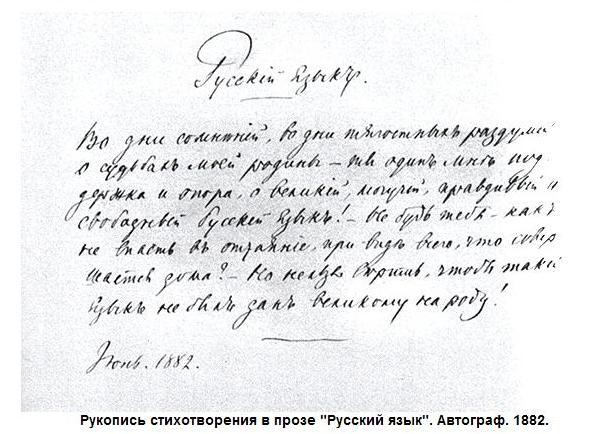 Русскій Языкъ.
Во дни сомнѣній, во дни тягостныхъ раздумій
о судьбахъ моей родины – ты одинъ мнѣ под
держка и опора, о великій, могучій, правдивый и
свободный Русскій Языкъ! – Не будь тебя – какъ
не впасть въ отчаяніе, при видѣ всего, что совер
шается дома? – Но нельзя вѣрить, чтобы такой
языкъ не былъ данъ великому народу!
Іюнь. 1882.
Рукопись стихотворения в прозе "Русский язык". Автограф. 1882.